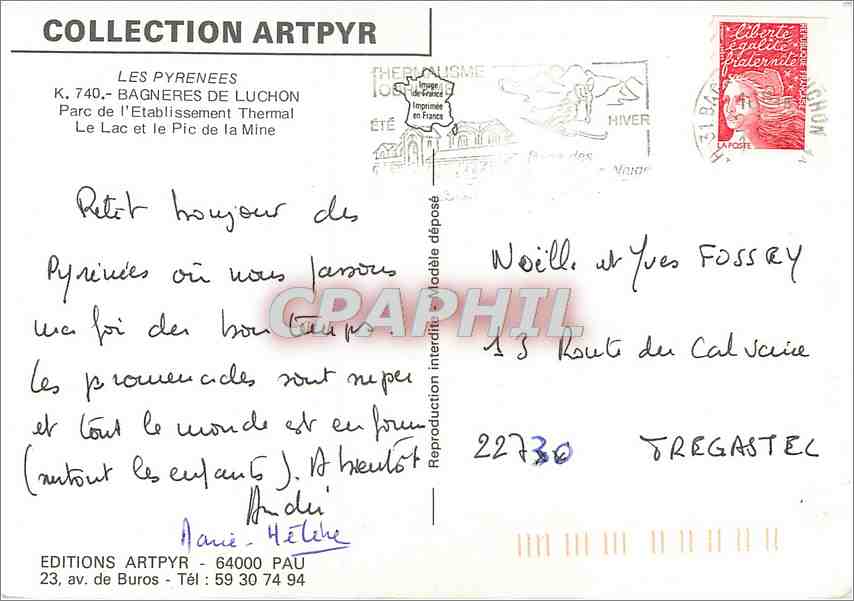 COLLECTION ARTPYR
LES PYRENEES
K. 740.- BAGNERES DE LUCHON
Parc de l'Etablissement Thermal
Le Lac et le Pic de la Mine
THERMALISME
ÉTÉ
HIVER
Image
de France
Imprimée
en France
liberté
égalité
fraternité
REPUBLIQUE FRANÇAISE
LA POSTE
Petit bonjour des
Pyrénées où nous passons
ma foi des bon temps.
Les promenades sont super
et tout le monde est en forme
(surtout les enfants). A bientôt
André
Marie-Hélène
Reproduction interdite - Modèle déposé
CPAPHIL
Noëlle et Yves FOSSEY
13 Route du Calvaire
22730 TREGASTEL
EDITIONS ARTPYR - 64000 PAU
23, av. de Buros - Tél : 59 30 74 94